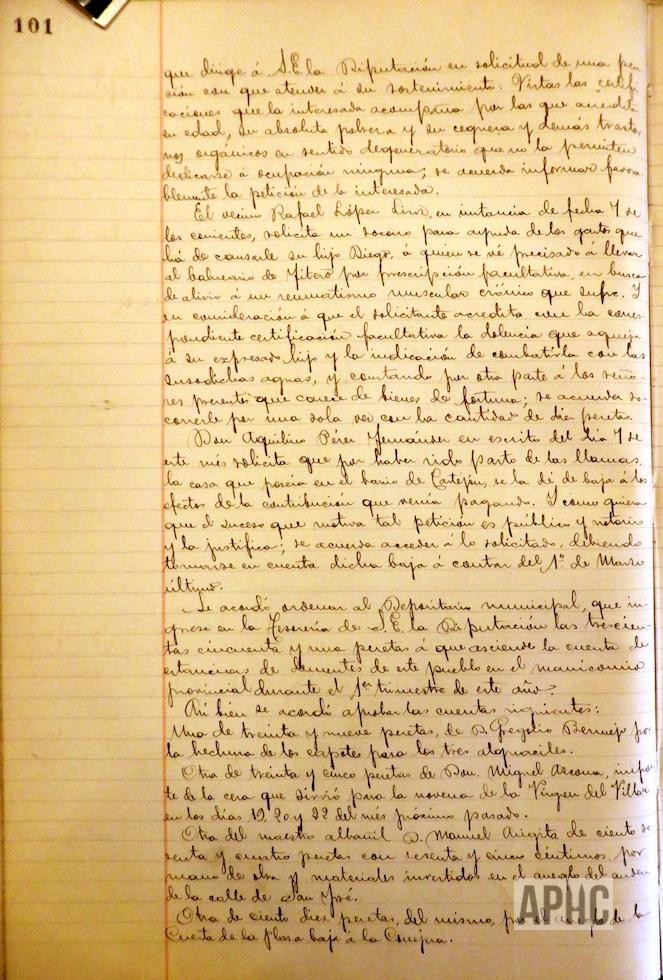 101
que dirige á S.E. la Diputación en solicitud de una pen
sión con que atender á su sostenimiento. Vistas las certifi
caciones que la interesada acompaña por las que acredita
su edad, su absoluta pobreza y su ceguera y demás trastor
nos orgánicos en sentido degeneratorio que no la permiten
dedicarse á ocupación ninguna; se acuerda informar favora
blemente la petición de la interesada.
El vecino Rafael López, en instancia de fecha 7 de
los corrientes, solicita un socorro para ayuda de los gastos que
há de causarle su hijo Diego, á quien se vé precisado á llevar
al balneario de Fitero por prescripción facultativa, en busca
de alivio á un reumatismo muscular crónico que sufre. Y
en consideración á que el solicitante acredita con la corres
pondiente certificación facultativa la dolencia que aqueja
á su expresado hijo y la indicación de combatirla con las
susodichas aguas, y constando por otra parte á los seño
res presentes que carece de bienes de fortuna; se acuerda so
correrle por una sola vez con la cantidad de diez pesetas.
Don Aquilino Pérez Fernández en escrito del dia 7 de
este més solicita que por haber sido pasto de las llamas
la casa que poseia en el barrio de Castejón, se la dé de baja á los
efectos de la contribución que venía pagando. Y como quiera
que el suceso que motiva tal petición es público y notorio
y la justifica; se acuerda acceder á lo solicitado, debiendo
tomarse en cuenta dicha baja á contar del 1º de Marzo
último.
Se acordó ordenar al Depositario municipal, que in
grese en la Tesorería de S.E. la Diputación las trescien
tas cincuenta y una pesetas á que asciende la cuenta de
estancias de dementes de este pueblo en el manicomio
provincial durante el 1er trimestre de este año.
Asi bien se acordó aprobar las cuentas siguientes:
Una de treinta y nueve pesetas, de D. Gregorio Bermejo por
la hechura de los capotes para los tres alguaciles.
Otra de treinta y cinco pesetas de Don Miguel Azcona, impor
te de la cera que sirvió para la novena de la Virgen del Villar
en los dias 19 20 y 22 del més próximo pasado.
Otra del maestro albañil D. Manuel Aiigita de ciento se
senta y cuatro pesetas con sesenta y cinco céntimos, por
mano de obra y materiales invertidos en el arreglo del anden
de la calle de San José.
Otra de ciento diez pesetas, del mismo, por el arreglo de la
Cuesta de la plaza baja á la Conejera.
APHC